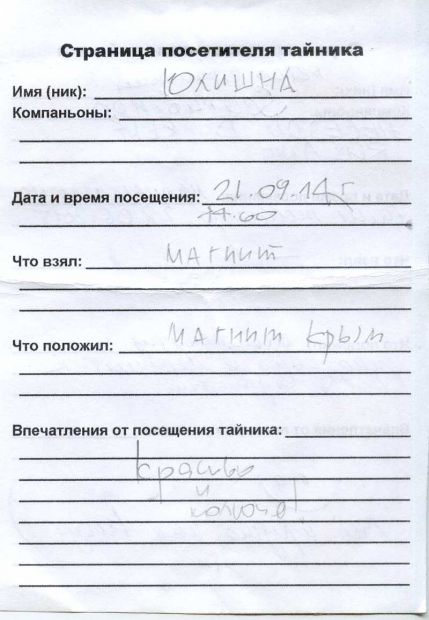 Страница посетителя тайника
Имя (ник): Юлишна
Компаньоны:
Дата и время посещения: 21.09.14г
Что взял: Магнит
Что положил: Магнит Крым
Впечатления от посещения тайника:
Красиво
и